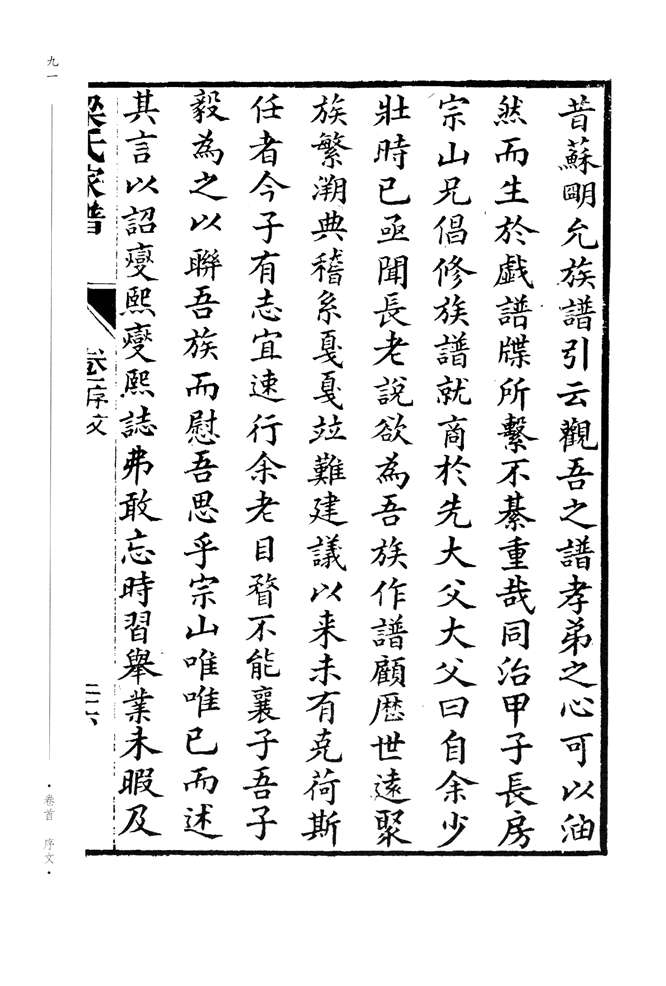 昔蘇明允族譜引云觀吾之譜孝弟之心可以油
然而生於戲譜牒所繫不綦重哉同治甲子長房
宗山兄倡修族譜就商於先大父大父曰自余少
壯時已亟聞長老說欲為吾族作譜顧歷世遠聚
族繁溯典稽系戛戛竝難建議以来未有克荷斯
任者今子有志宜速行余老目瞀不能襄子吾子
毅為之以聯吾族而慰吾思乎宗山唯唯已而述
其言以詔燮熙燮熙誌弗敢忘時習舉業未暇及
梁氏家譜
序文
九一
·卷首 序文·